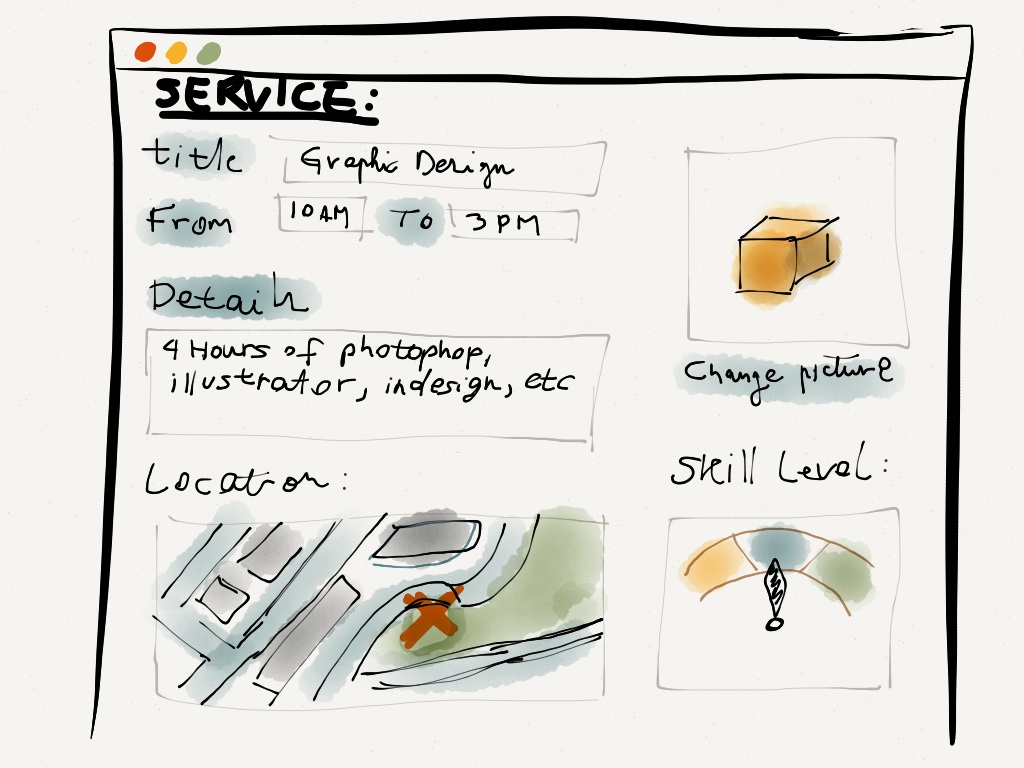 SERVICE:
title Graphic Design
From 10AM To 3 PM
Details
4 Hours of photophop,
illustrator, indesign, etc
Change picture
Location:
Skill Level: